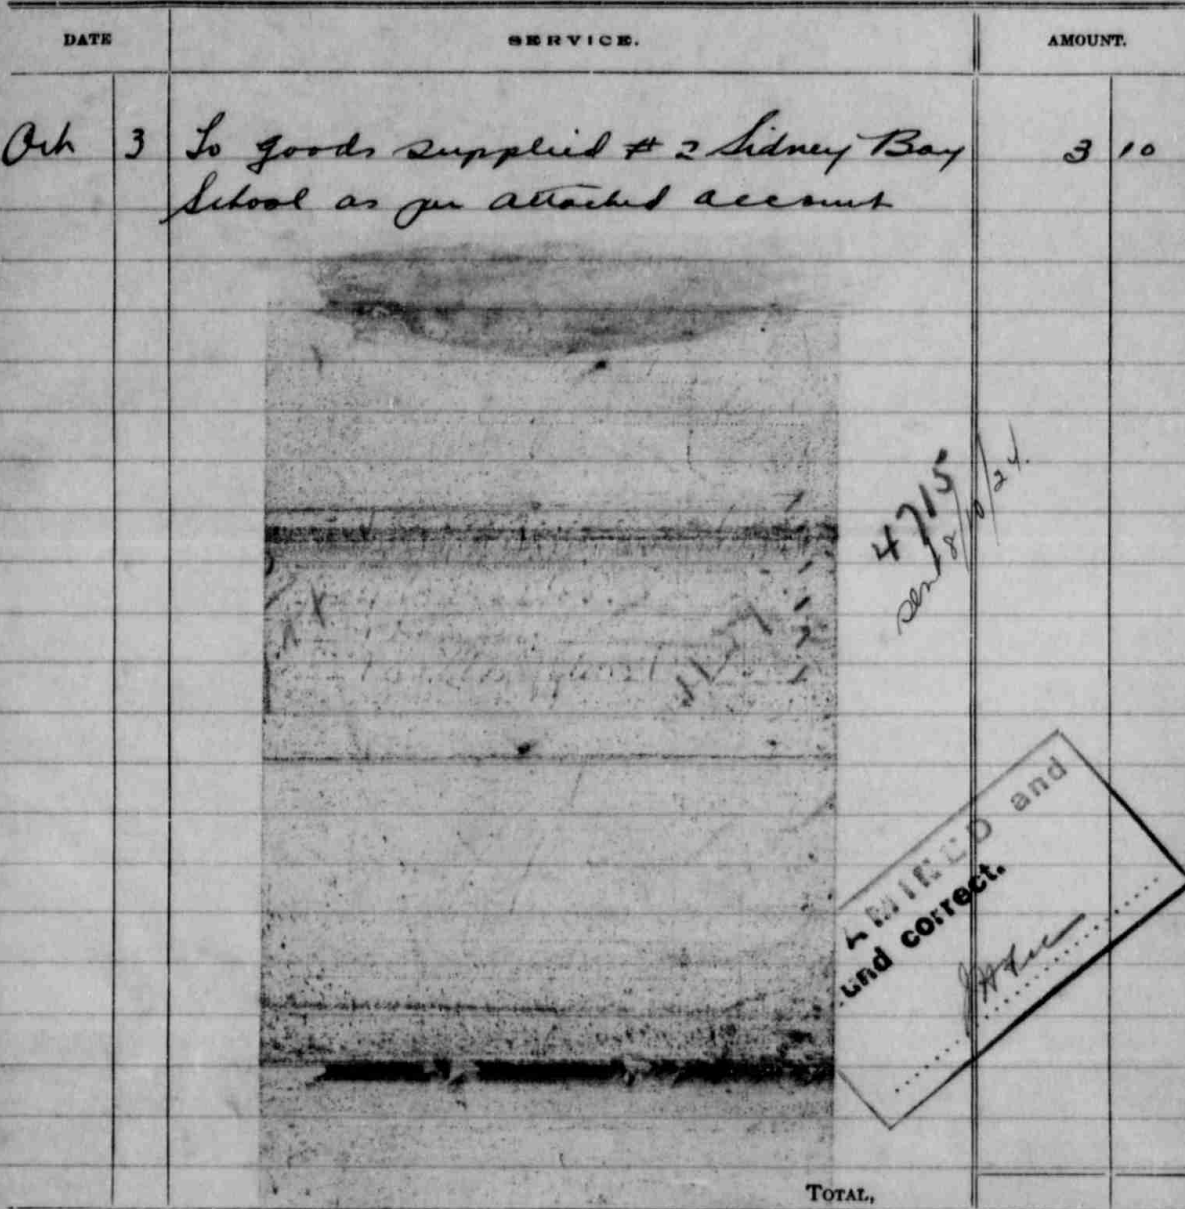 DATE SERVICE. AMOUNT.
Oct 3 To goods supplied # 2 Sidney Bay 3 10
School as per attached account
4715
sent 8/10/24.
AMINED and
und correct.
TOTAL,